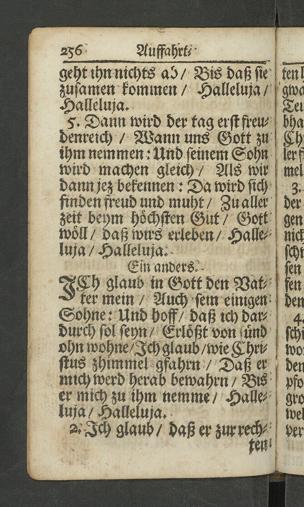 256 Auffahrt.
geht ihn nichts ab / Bis daß sie
zusamen kommen / Halleluja /
Halleluja.
5. Dann wird der tag erst freu-
denreich / Wann uns Gott zu
ihm nemmen: Und seinem Sohn
wird machen gleich / Als wir
dann jez bekennen: Da wird sich
finden freud und muht / Zu aller
zeit beym höchsten Gut / Gott
wöll / daß wirs erleben / Halle-
luja / Halleluja.
Ein anders.
ICh glaub in Gott den Vat-
ter mein / Auch sein einigen
Sohne: Und hoff / daß ich dar-
durch sol seyn / Erlößt von sünd
ohn wohne / Ich glaub / wie Chri-
stus zhimmel gfahrn / Daß er
mich werd herab bewahrn / Bis
er mich zu ihm nemme / Halle-
luja / Halleluja.
2. Ich glaub / daß er zur rech-
ten